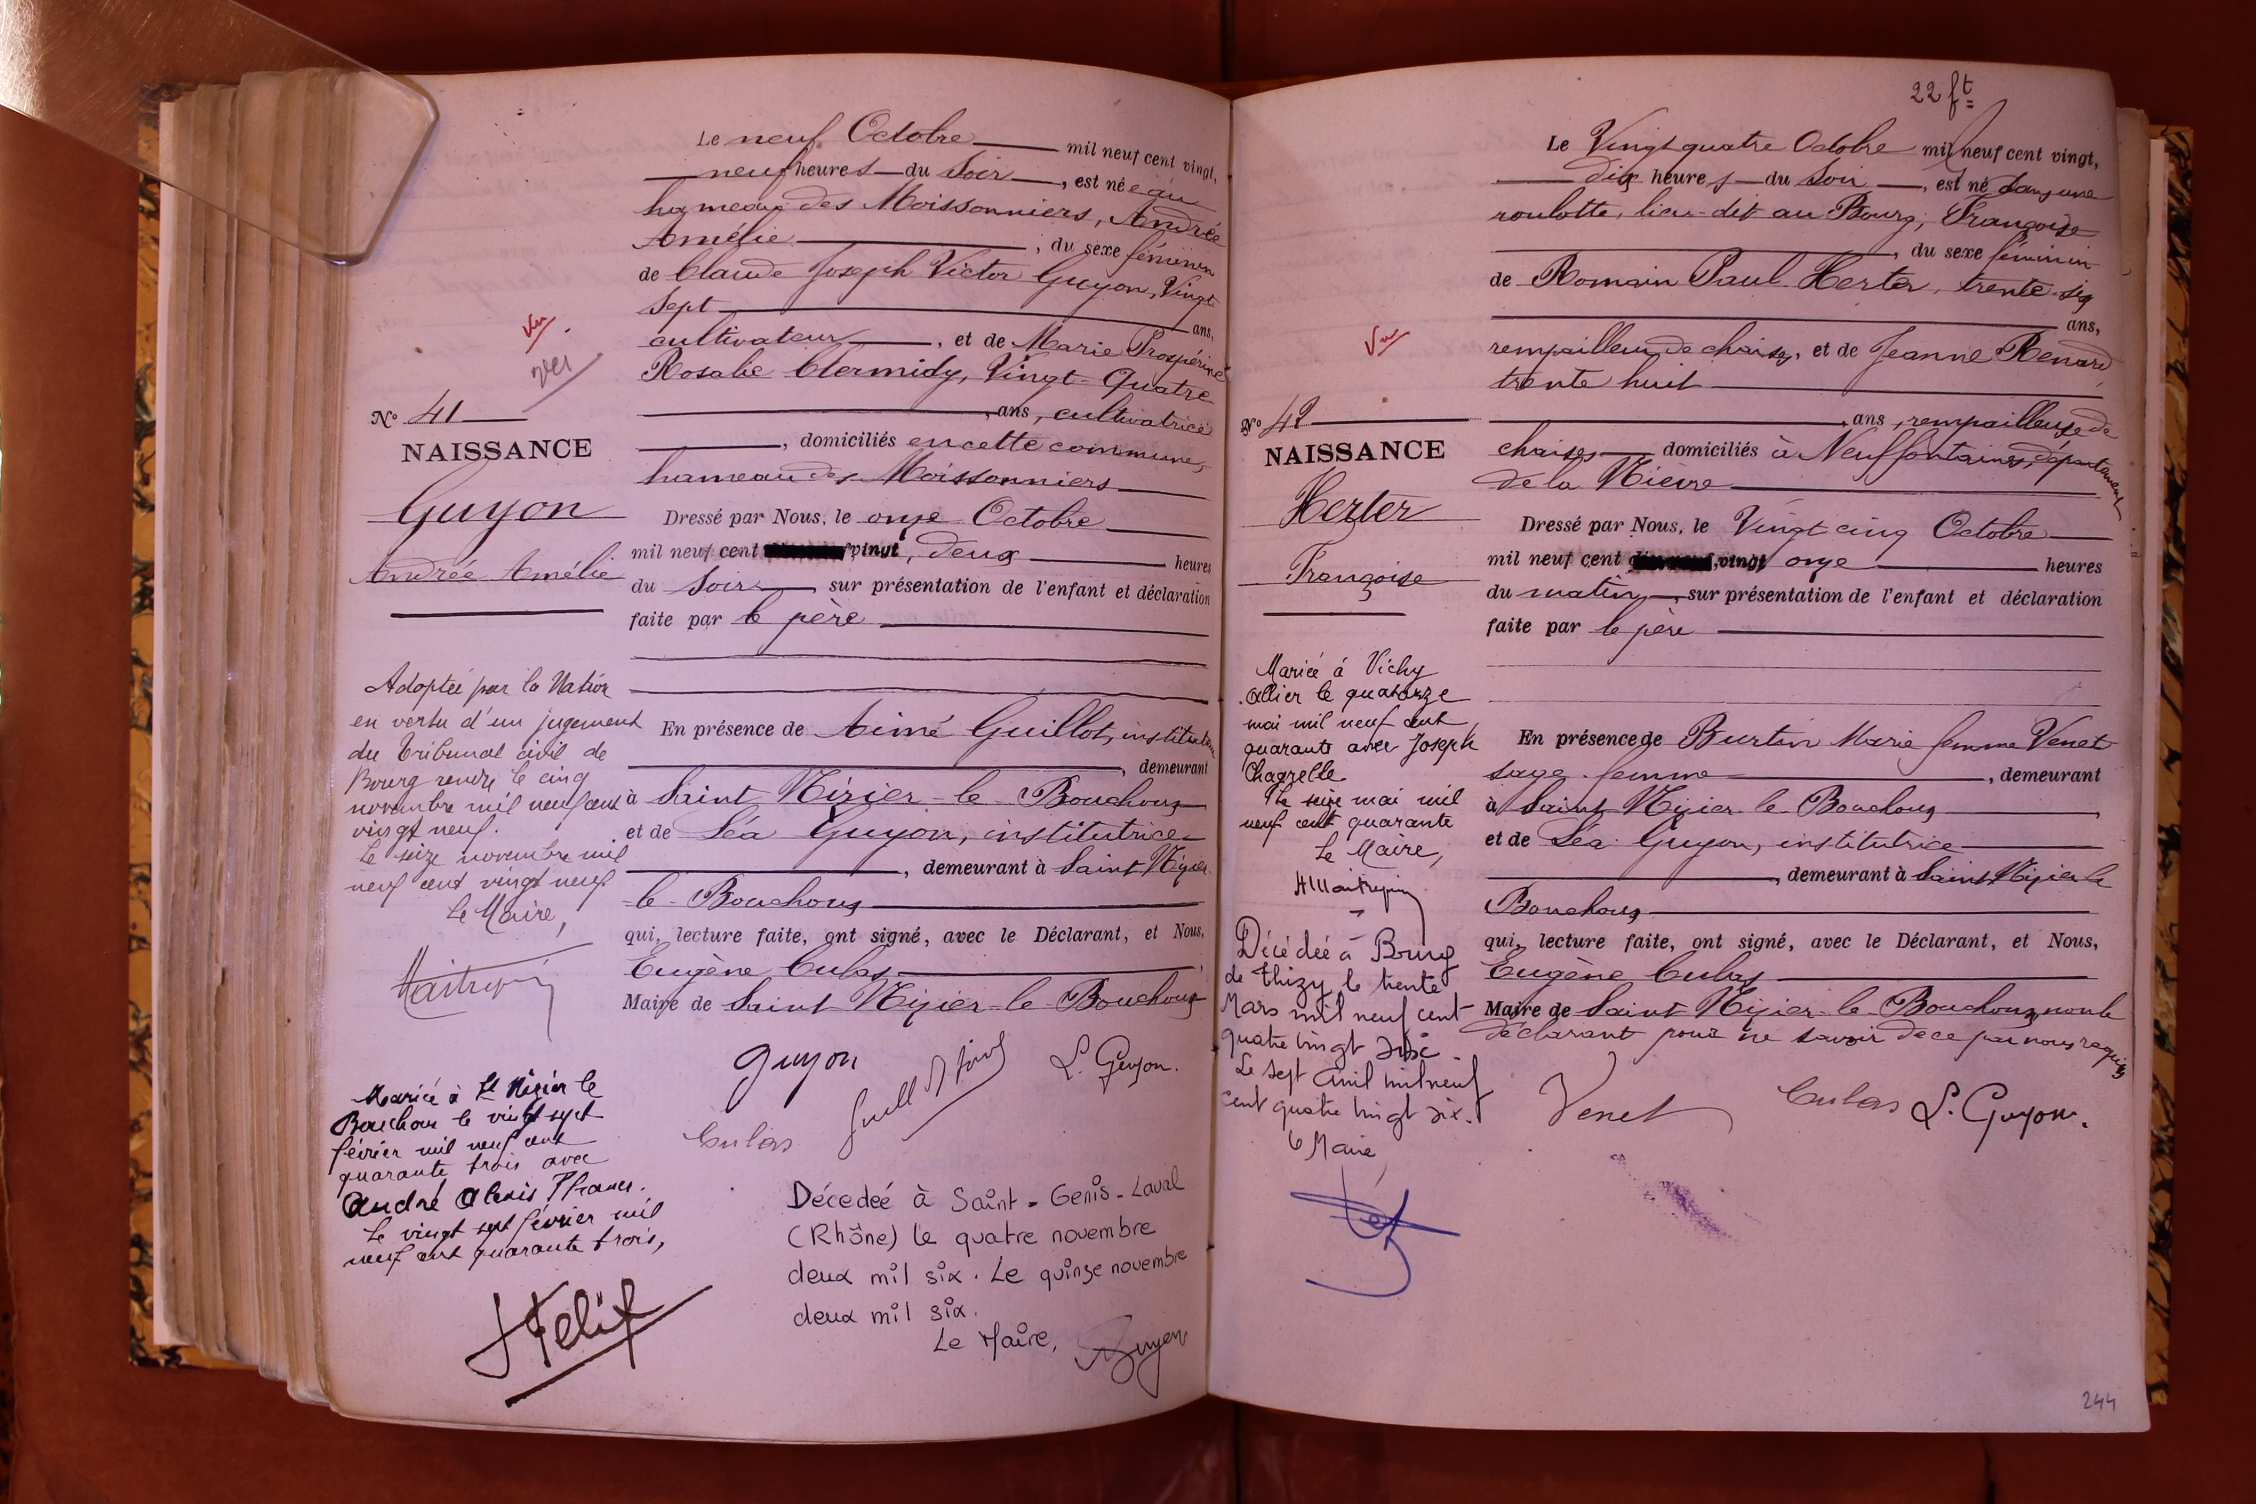 Le neuf Octobre mil neuf cent vingt,
neuf heures du soir, est née au
hameau des Moissonniers, Andrée
Amélie, du sexe féminin
de Claude Joseph Victor Guyon, Vingt
sept ans,
cultivateur, et de Marie Prospérine
Rosalie Clermidy, Vingt-Quatre
ans, cultivatrice
, domiciliés en cette commune,
hameau des Moissonniers
Dressé par Nous, le onze Octobre
mil neuf cent vingt, deux heures
du soir sur présentation de l'enfant et déclaration
faite par le père
En présence de Aimé Guillot, instituteur
, demeurant
à Saint Nizier-le-Bouchoux
et de Léa Guyon, institutrice
, demeurant à Saint Nizier
le-Bouchoux
qui, lecture faite, ont signé, avec le Déclarant, et Nous,
Eugène Culas
Maire de Saint Nizier-le-Bouchoux
guyon
L. Guyon.
Culas
Vu
Vu
N° 41
NAISSANCE
Guyon
Andrée Amélie
Adoptée par la Nation
en vertu d'un jugement
du Tribunal civil de
Bourg rendu le cinq
novembre mil neuf cent
vingt neuf.
Le seize novembre mil
neuf cent vingt neuf
Le Maire,
Mariée à St Nizier le
Bouchoux le vingt sept
février mil neuf cent
quarante trois avec
André Alexis
Le vingt sept février mil
neuf cent quarante trois,
Décedeé à Saint-Genis-Laval
(Rhône) le quatre novembre
deux mil six. Le quinze novembre
deux mil six.
Le Maire,
22 ft
Le Vingt quatre Octobre mil neuf cent vingt,
dix heures du soir, est né dans une
roulotte, lieu-dit au Bourg, Françoise
, du sexe féminin
de Romain Paul Herter, trente-six
ans,
rempailleur de chaises, et de Jeanne Renard
trente huit
ans, rempailleuse de
chaises domiciliés à Neuffontaines, département
de la Nièvre
Dressé par Nous, le Vingt cinq Octobre
mil neuf cent vingt onze heures
du matin, sur présentation de l'enfant et déclaration
faite par le père
En présence de Burtin Marie femme Venet
sage-femme, demeurant
à Saint Nizier-le-Bouchoux
et de Léa Guyon, institutrice
, demeurant à Saint Nizier le
Bouchoux
qui, lecture faite, ont signé, avec le Déclarant, et Nous,
Eugène Culas
Maire de Saint Nizier-le-Bouchoux non le
déclarant pour ne savoir de ce par nous requis
Venet
Culas
L. Guyon.
Vu
N° 42
NAISSANCE
Herter
Françoise
Mariée à Vichy
Allier le quatorze
mai mil neuf cent
quarante avec Joseph
Chazelle
Le seize mai mil
neuf cent quarante
Le Maire,
Décédeé à Bourg
de Thizy le trente
Mars mil neuf cent
quatre vingt six.
Le sept Avril mil neuf
cent quatre vingt six.
Le Maire,
244